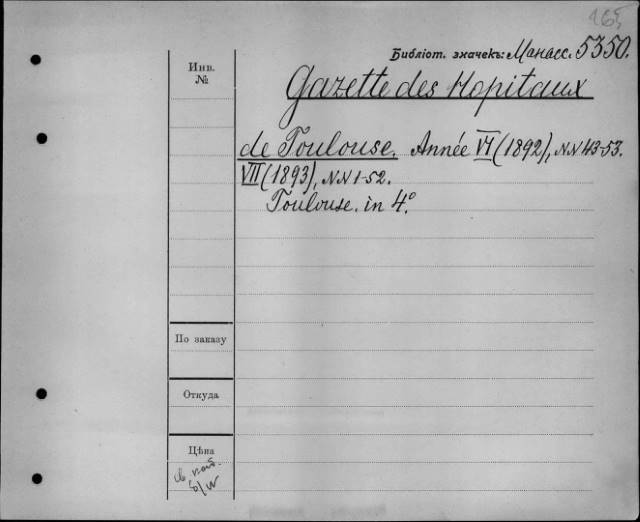 165
Библіот. значекъ: Манасс. 5350.
Инв.
№
Gazette des Hopitaux
de Toulouse. Année VI (1892), NN 43-53.
VII (1893), NN 1-52.
Toulouse. in 4°
По заказу
Откуда
Цѣна